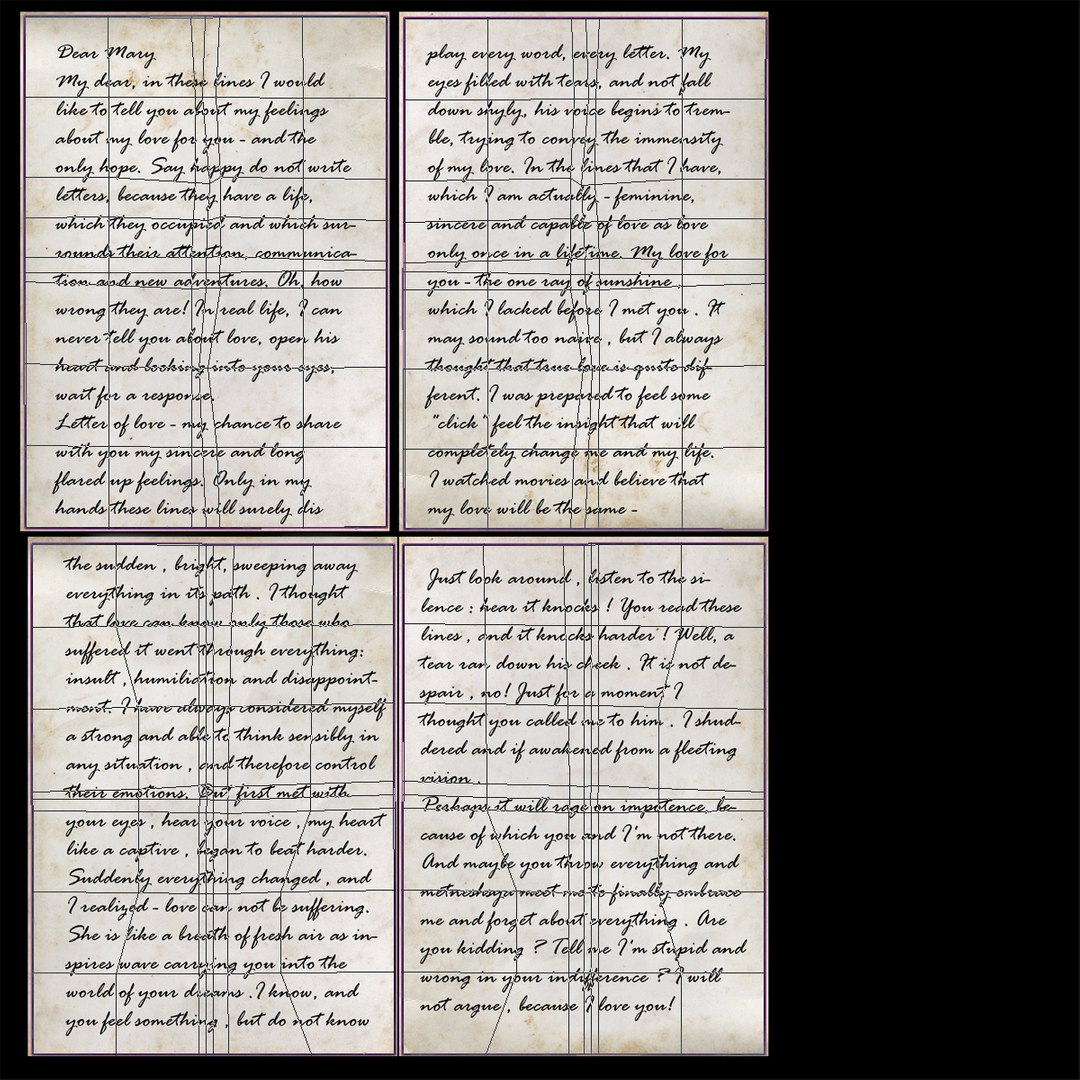 Dear Mary
My dear, in these lines I would
like to tell you about my feelings
about my love for you - and the
only hope. Say happy do not write
letters, because they have a life,
which they occupied and which sur-
rounds their attention, communica-
tion and new adventures. Oh, how
wrong they are! In real life, I can
never tell you about love, open his
heart and looking into your eyes,
wait for a response.
Letter of love - my chance to share
with you my sincere and long
flared up feelings. Only in my
hands these lines will surely dis
play every word, every letter. My
eyes filled with tears, and not fall
down shyly, his voice begins to trem-
ble, trying to convey the immensity
of my love. In the lines that I have,
which I am actually - feminine,
sincere and capable of love as love
only once in a lifetime. My love for
you - the one ray of sunshine,
which I lacked before I met you . It
may sound too naive , but I always
thought that true love is quite dif-
ferent. I was prepared to feel some
"click" feel the insight that will
completely change me and my life.
I watched movies and believe that
my love will be the same -
the sudden , bright, sweeping away
everything in its path . I thought
that love can know only those who
suffered it went through everything:
insult , humiliation and disappoint-
ment. I have always considered myself
a strong and able to think sensibly in
any situation , and therefore control
their emotions. But first met with
your eyes , hear your voice , my heart
like a captive , began to beat harder.
Suddenly everything changed , and
I realized - love can not be suffering.
She is like a breath of fresh air as in-
spires wave carrying you into the
world of your dreams . I know, and
you feel something , but do not know
Just look around , listen to the si-
lence : hear it knocks ! You read these
lines , and it knocks harder ! Well, a
tear ran down his cheek . It is not de-
spair , no! Just for a moment I
thought you called me to him . I shud-
dered and if awakened from a fleeting
vision .
Perhaps it will rage on impotence, be-
cause of which you and I'm not there.
And maybe you throw everything and
metneshsya meet me to finally embrace
me and forget about everything . Are
you kidding ? Tell me I'm stupid and
wrong in your indifference ? I will
not argue , because I love you!